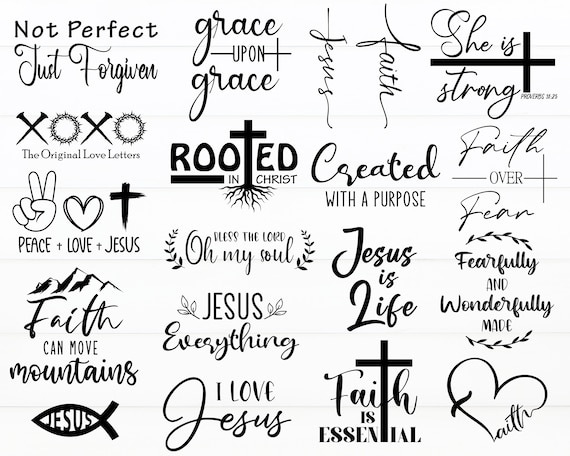 Not Perfect
Just Forgiven
grace
UPON
grace
Jesus
Faith
She is
strong
PROVERBS 31:25
XOXO
The Original Love Letters
ROOTED
IN CHRIST
Created
WITH A PURPOSE
Faith
OVER
Fear
PEACE + LOVE + JESUS
BLESS THE LORD
Oh my soul
Jesus
is
Life
Fearfully
AND
Wonderfully
MADE
Faith
CAN MOVE
mountains
JESUS
Everything
JESUS
I LOVE
Jesus
Faith
IS
ESSENTIAL
Faith